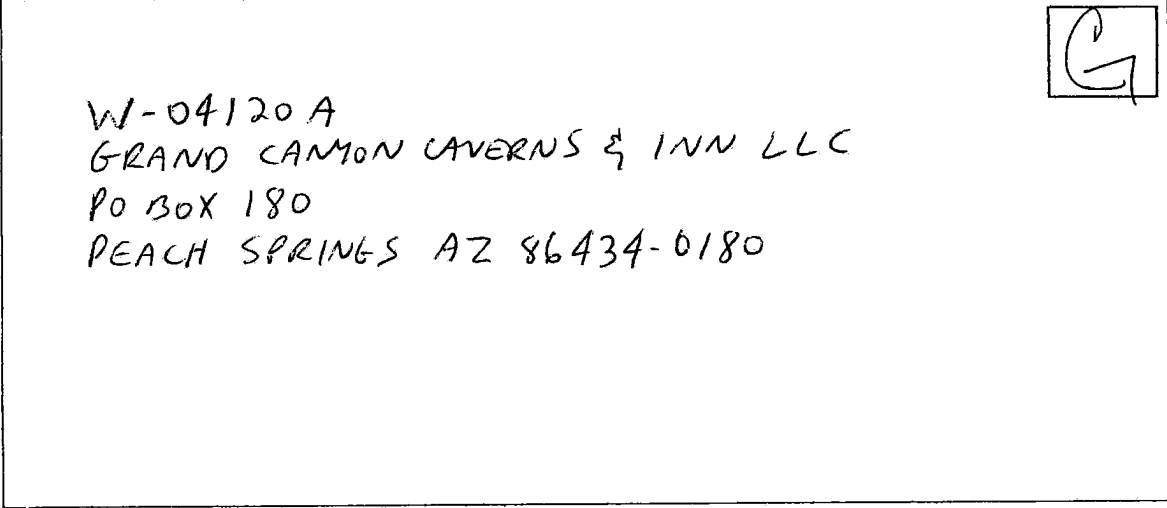 G
W-04120A
GRAND CANYON CAVERNS & INN LLC
PO BOX 180
PEACH SPRINGS AZ 86434-0180